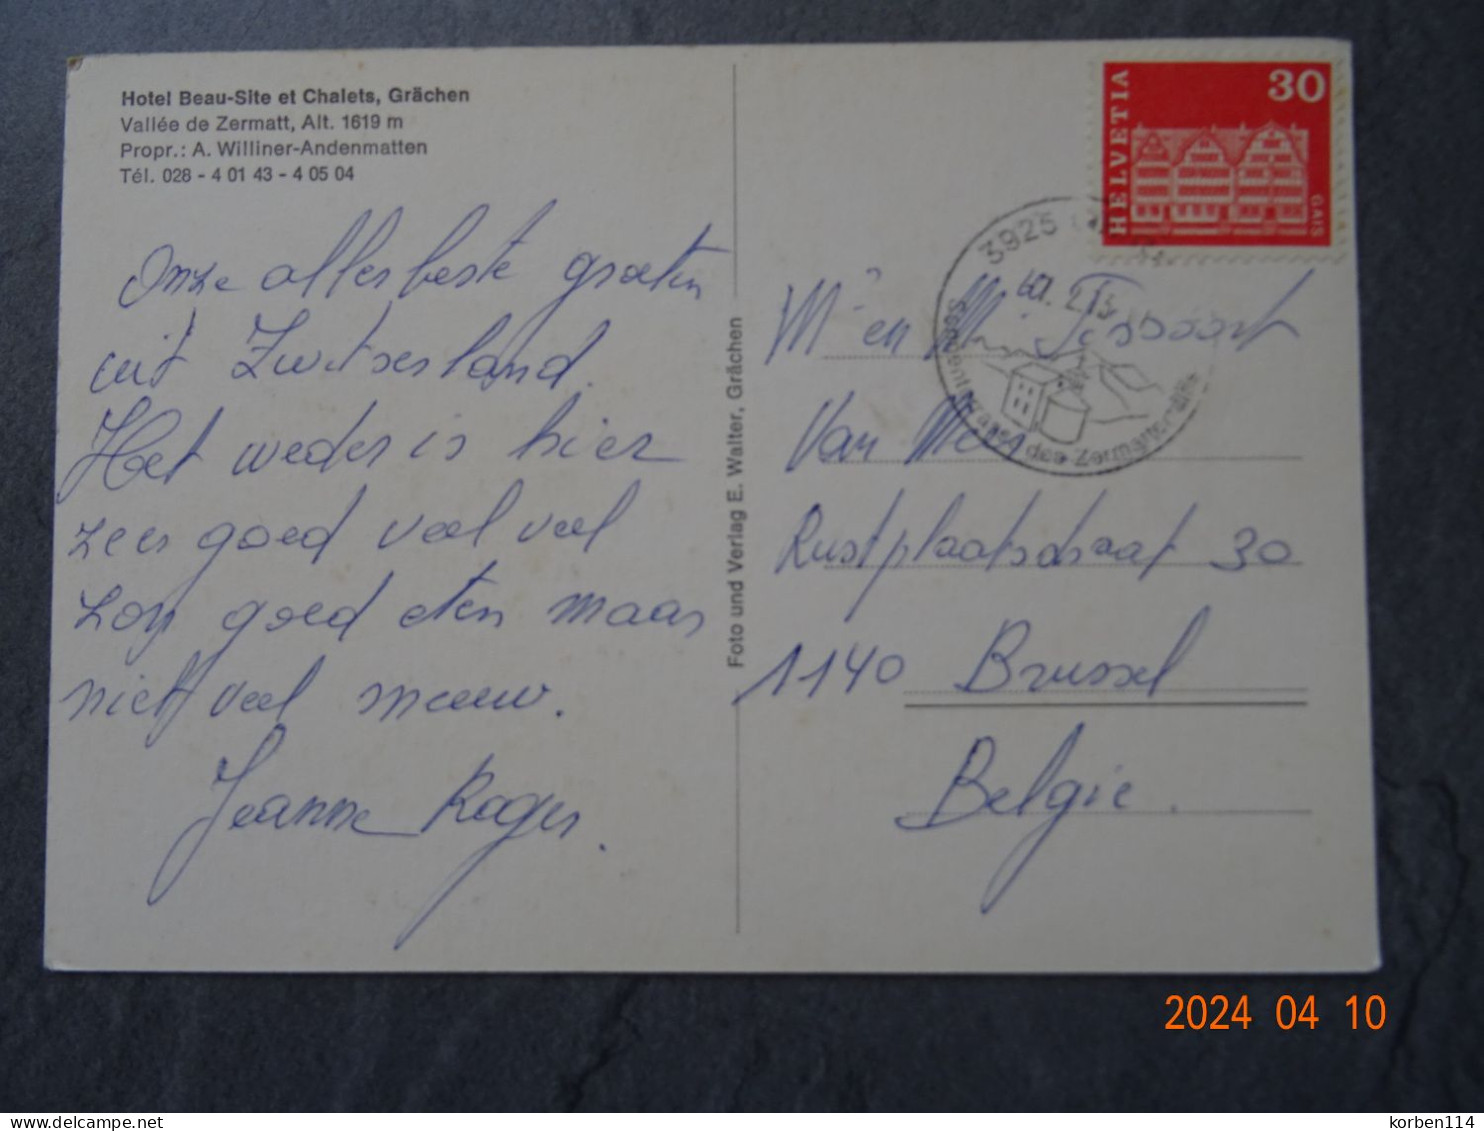 Hotel Beau-Site et Chalets, Grächen
Vallée de Zermatt, Alt. 1619 m
Propr.: A. Williner-Andenmatten
Tél. 028 - 4 01 43 - 4 05 04
Onze allerbeste groeten
uit Zwitserland.
Het weder is hier
zeer goed veel veel
zon goed eten maar
niet veel sneeuw.
Jeanne Roger.
Foto und Verlag E. Walter, Grächen
HELVETIA
30
GAIS
3925
Zermattertals
Mr en Mme
Van
Rustplaatsstraat 30
1140 Brussel
Belgie.
2024 04 10
korben114